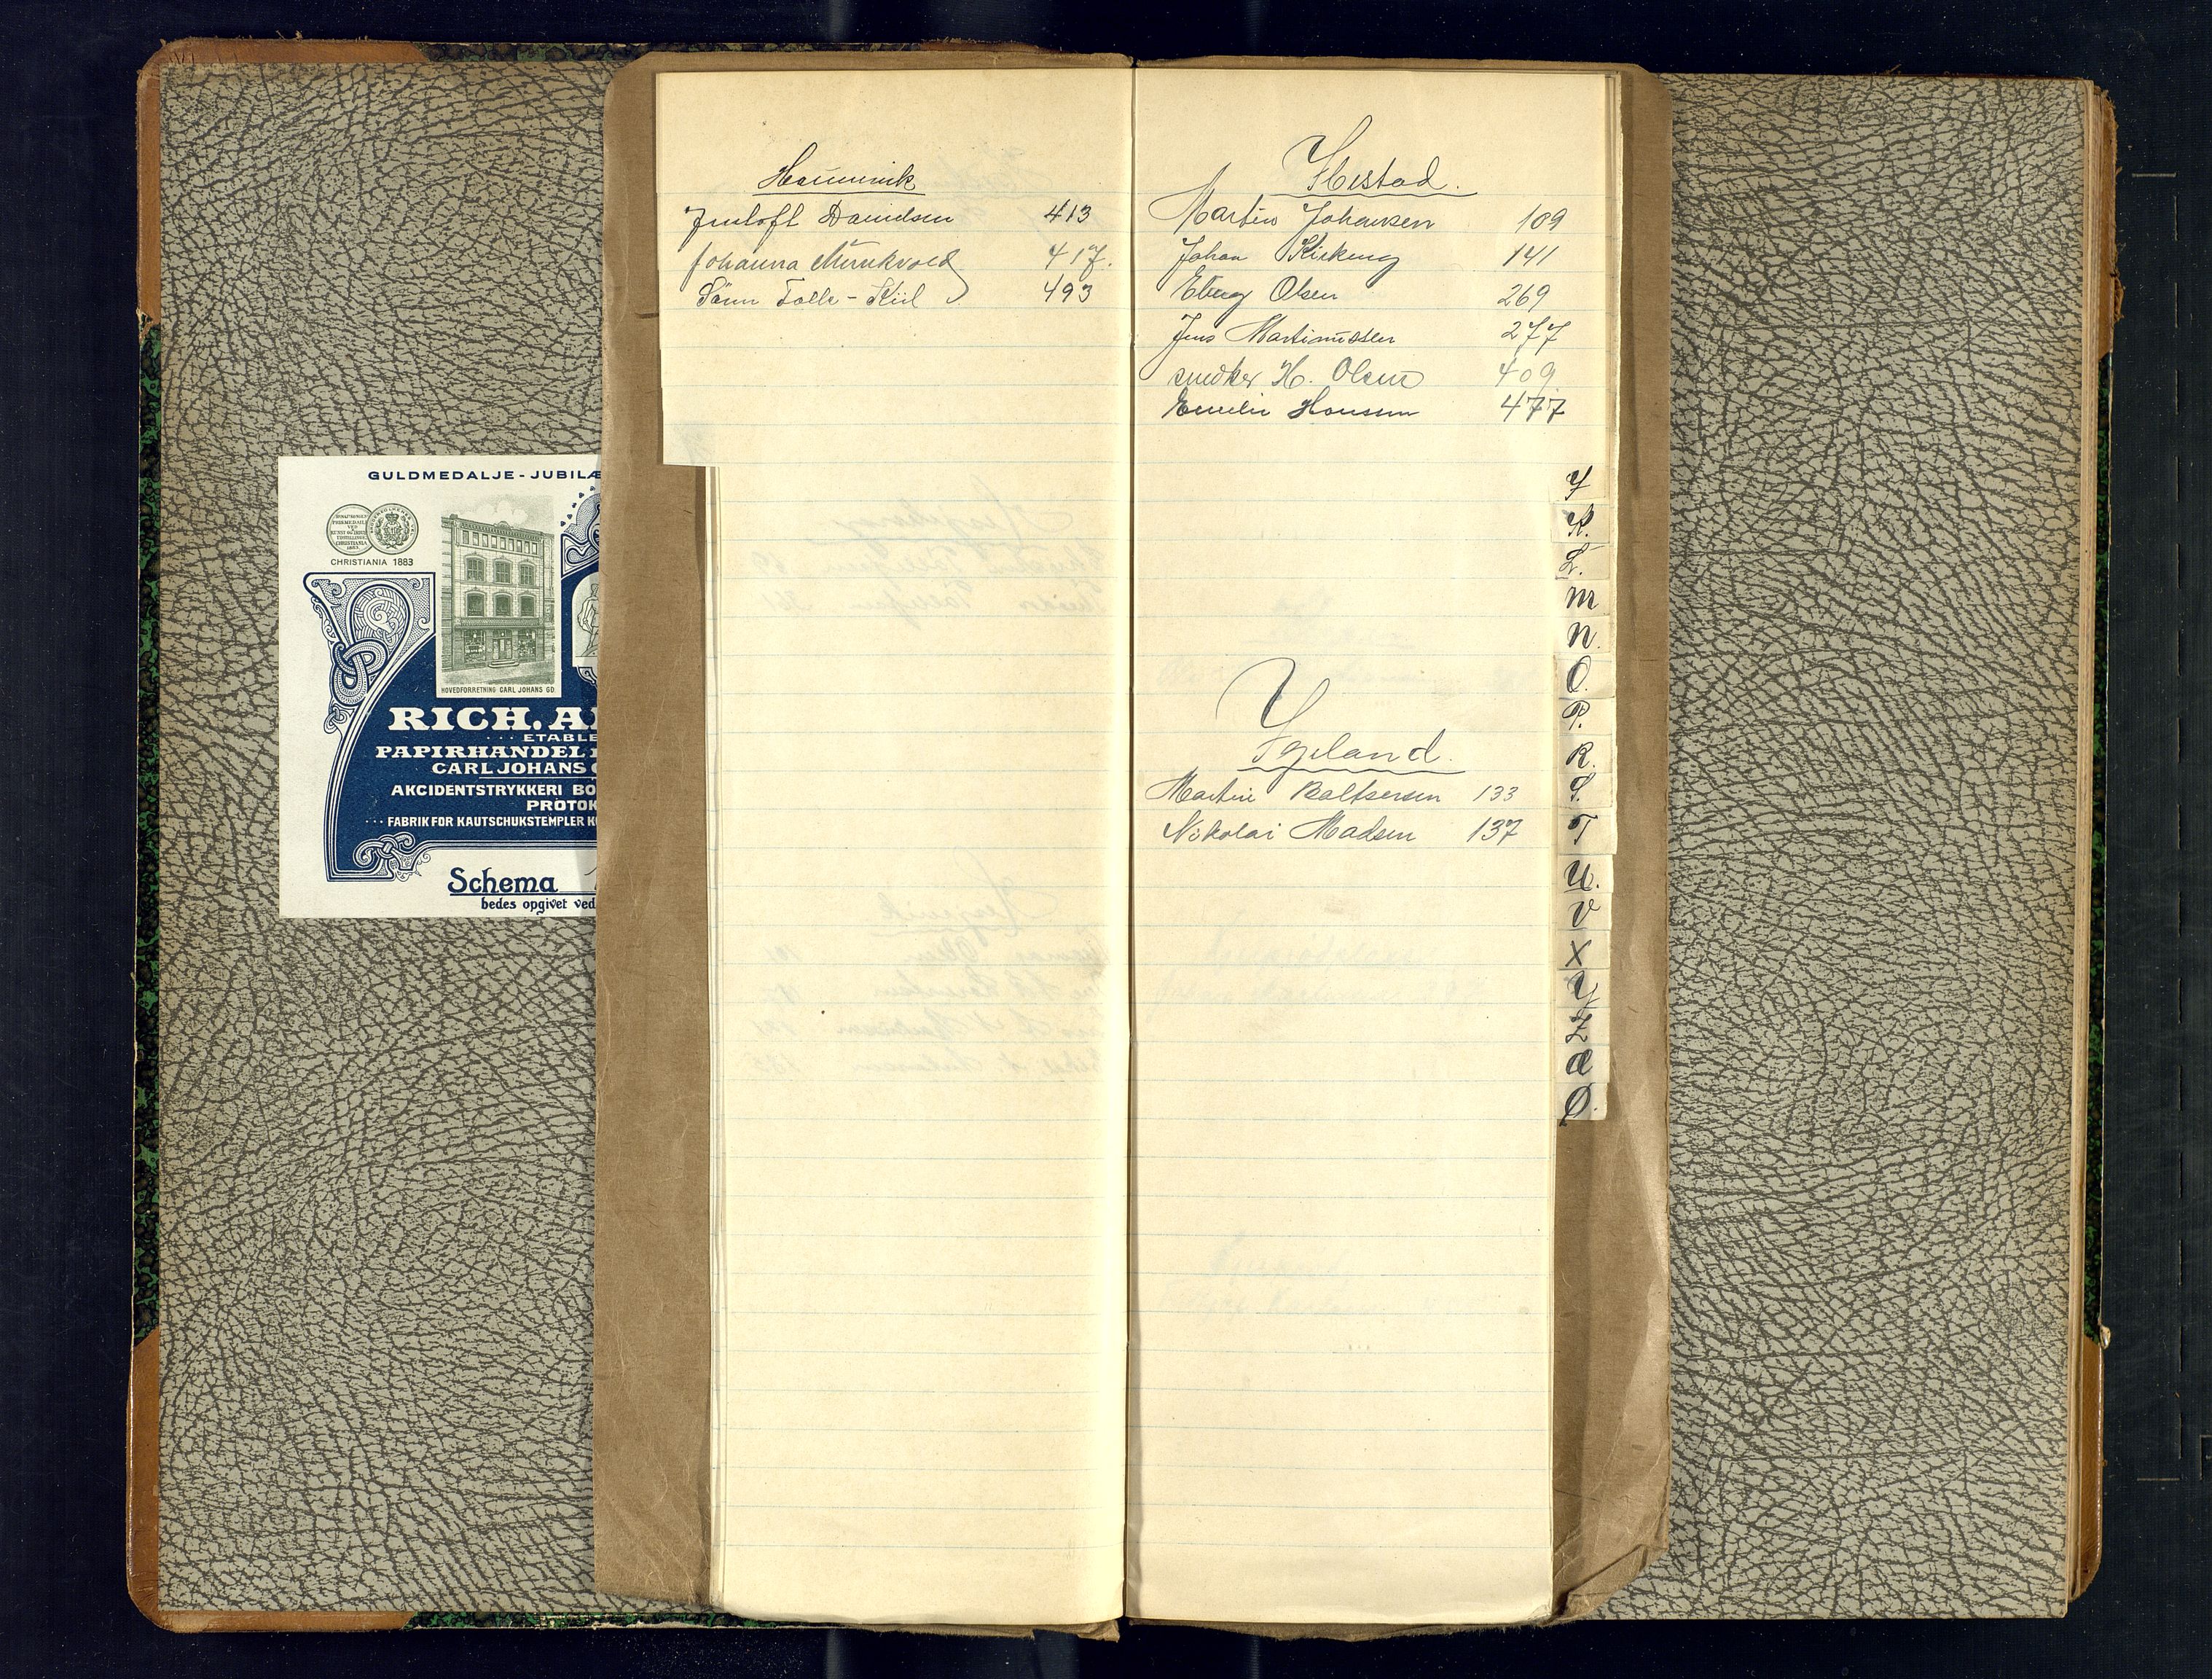 GULDMEDALJE-JUBILÆ
CHRISTIANIA 1883
HOVEDFORRETNING CARL JOHANS GD.
RICH. A
ETABLE
PAPIRHANDEL
CARL JOHANS G
AKCIDENTSTRYKKERI BO
PROTOK
FABRIK FOR KAUTSCHUKSTEMPLER K
Schema
bedes opgivet ved
Hamnvik
Jentoft Danielsen 413
Johanna Munkvold 417.
Sönn Tolle-Kiil 493
Ibestad.
Martin Johansen 109
Johan Kirkeng 141
Eberg Olsen 269
Jens Martinussen 277
snedker H. Olsen 409.
Emelie Hansen 477
Igeland.
Martin Baltsersen 133
Nikolai Madsen 137
I
K.
L.
M
N.
O.
P.
R.
S.
T
U.
V
X
Y
Z
Æ
Ø.